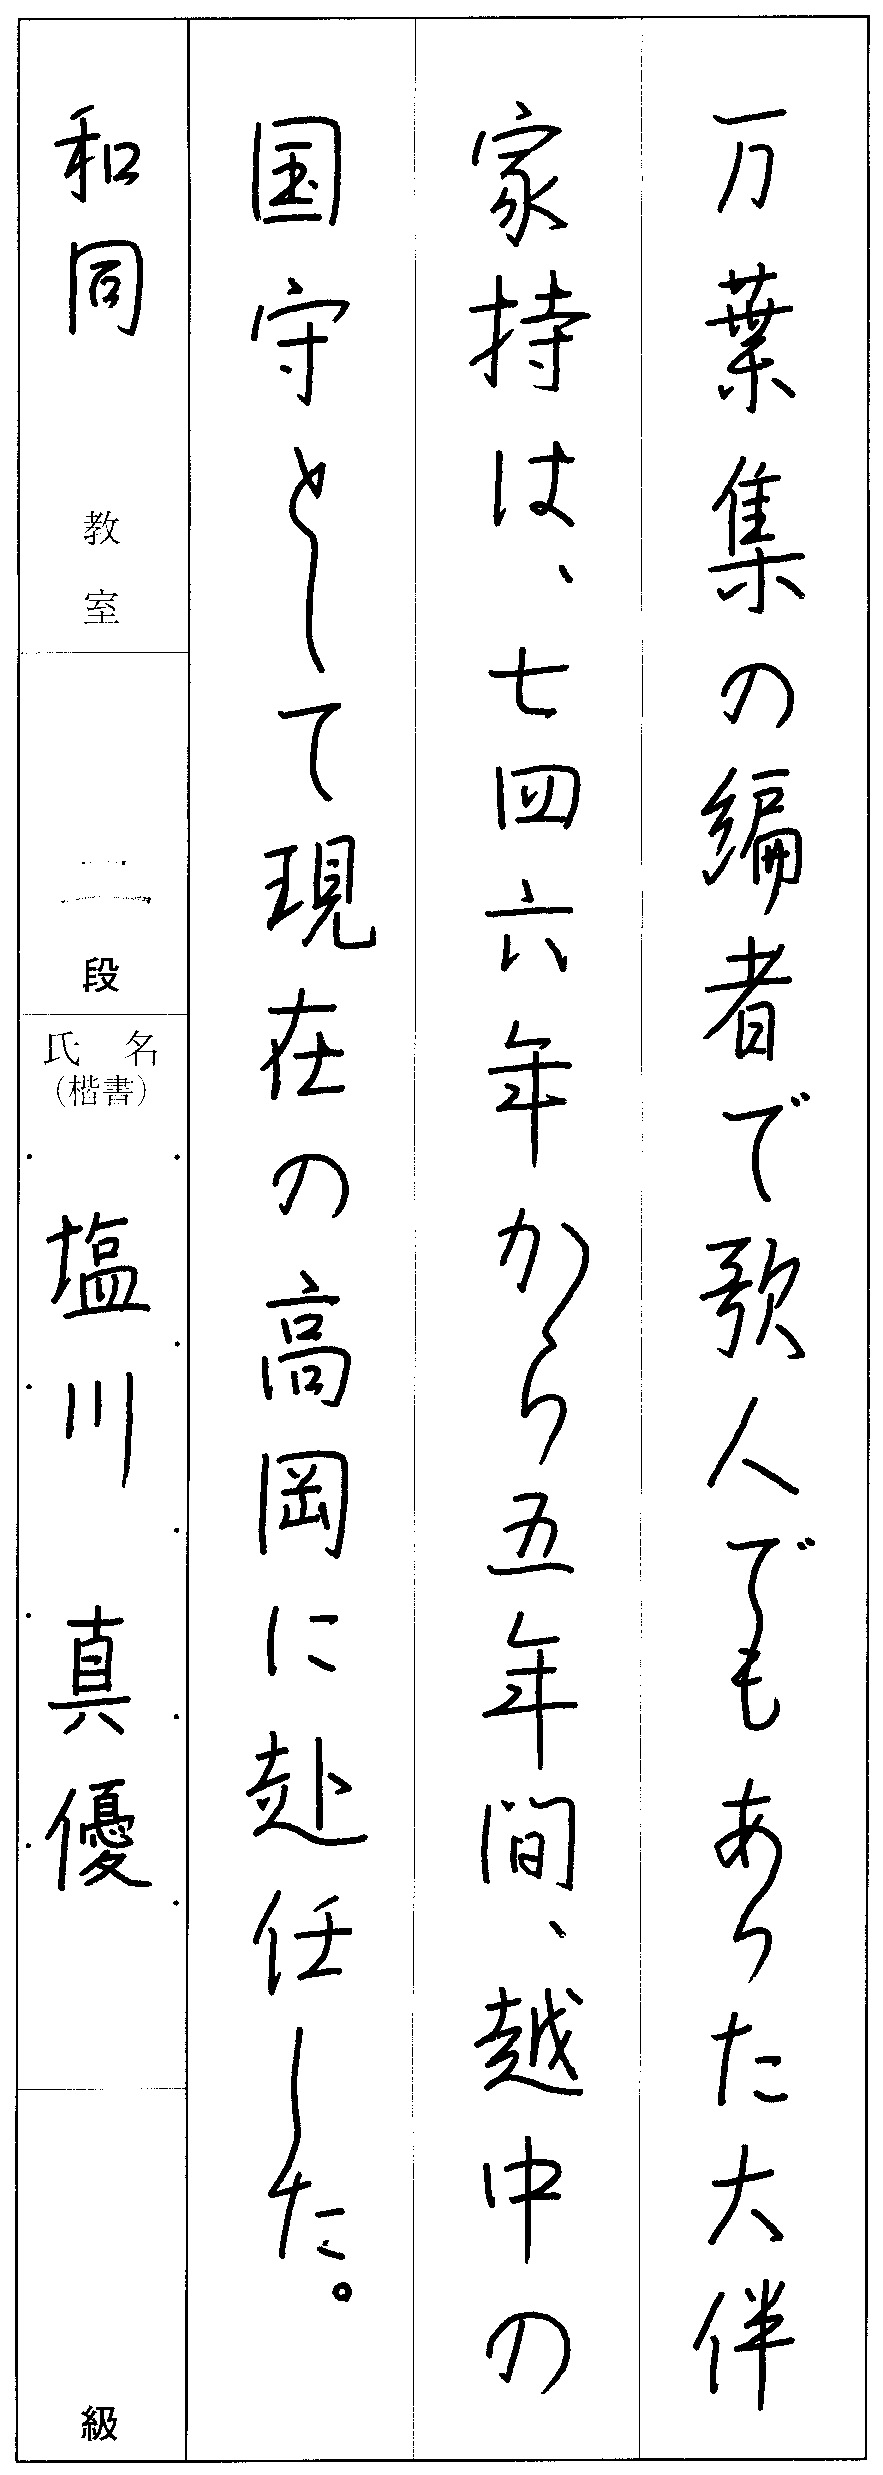 万葉集の編者で歌人でもあった大伴
家持は、七四六年から五年間、越中の
国守として現在の高岡に赴任した。
和同 教室
二段
氏名
(楷書)
塩川 真優
級